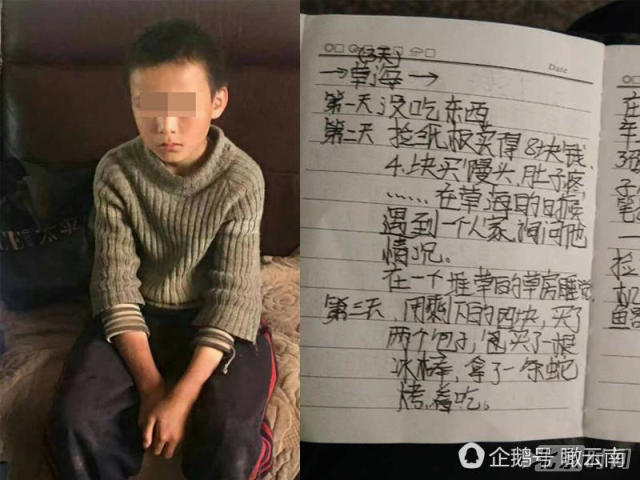 Date
(3天)
→草海→
第一天没吃东西
第二天 捡纸板卖得8块钱
4块买馒头,肚子疼
……在草海的时候
遇到一个人家,询问他
情况。
在一个堆草的草房睡觉
第三天,用剩下的四块,买了
两个包子,还买了一根
冰棒,拿了一条蛇
烤着吃。
在
车
子
笔
一
捡
机
鱼
企鹅号 瞰云南